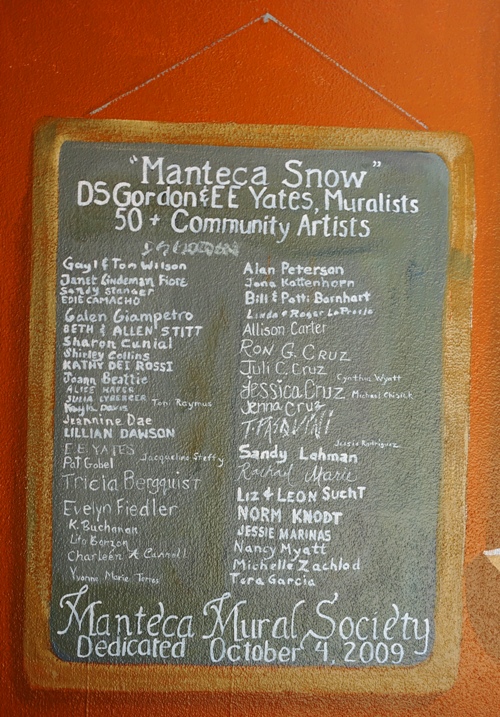 "Manteca Snow"
DS Gordon & EE Yates, Muralists
50 + Community Artists
Gayl & Tom Wilson
Janet Lindeman Fiore
Sandy Stanger
EDIE CAMACHO
Galen Giampetro
BETH & ALLEN STITT
Sharon Cunial
Shirley Collins
KATHY DEI ROSSI
Joann Beattie
ALICE
JULIA LYBERGER
Toni Raymus
Davis
Jeannine Dae
LILLIAN DAWSON
E.E. YATES
Jacqueline Steffy
Pat Gobel
Tricia Bergquist
Evelyn Fiedler
K. Buchanan
Lito Banzon
Charleen A Cunnall
Yvonne Marie Torres
Alan Peterson
Jena Kottenhorn
Bill & Patti Barnhart
Linda & Roger
Allison Carter
RON G. CRUZ
Juli C. Cruz
Cynthia Wyatt
Jessica Cruz
Michael
Jenna Cruz
Jessie Rodriguez
Sandy Lehman
Rachael Marie
LIZ & LEON SUCHT
NORM KNODT
JESSIE MARINAS
Nancy Myatt
Michelle Zachlod
Tera Garcia
Manteca Mural Society
Dedicated October 4, 2009